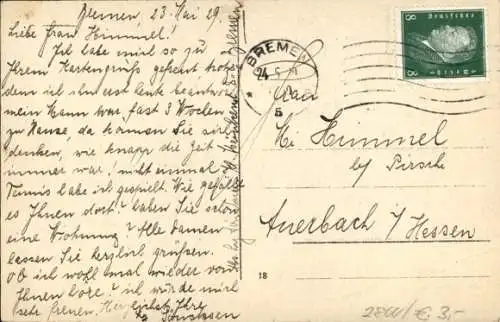 Bremen, 23. Mai 29.
Liebe Frau Himmel!
Ich habe mich so zu
Ihrem Kartengruß gefreut, trotz-
dem ich ihn erst heute beantworte
mein Mann war fast 3 Wochen
zu Hause, da können Sie sich
denken, wie knapp die Zeit
immer war! nicht einmal
Tennis habe ich gespielt. Wie gefällt
es Ihnen dort? haben Sie schon
eine Wohnung? Alle Damen
lassen Sie herzlich grüßen.
Ob ich wohl mal wieder von
Ihnen höre? ich würde mich
sehr freuen. Herzlichst Ihre
BREMEN
24. 5.
5
Deutsches Reich
8 8
Frau
Himmel
by Pirsch
Auerbach i/Hessen
18
€ 3,-